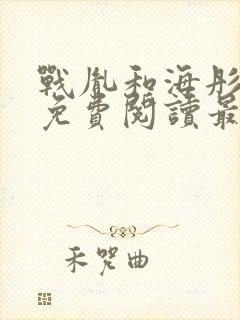 戰胤和海彤
免費閱讀最
禾咒曲